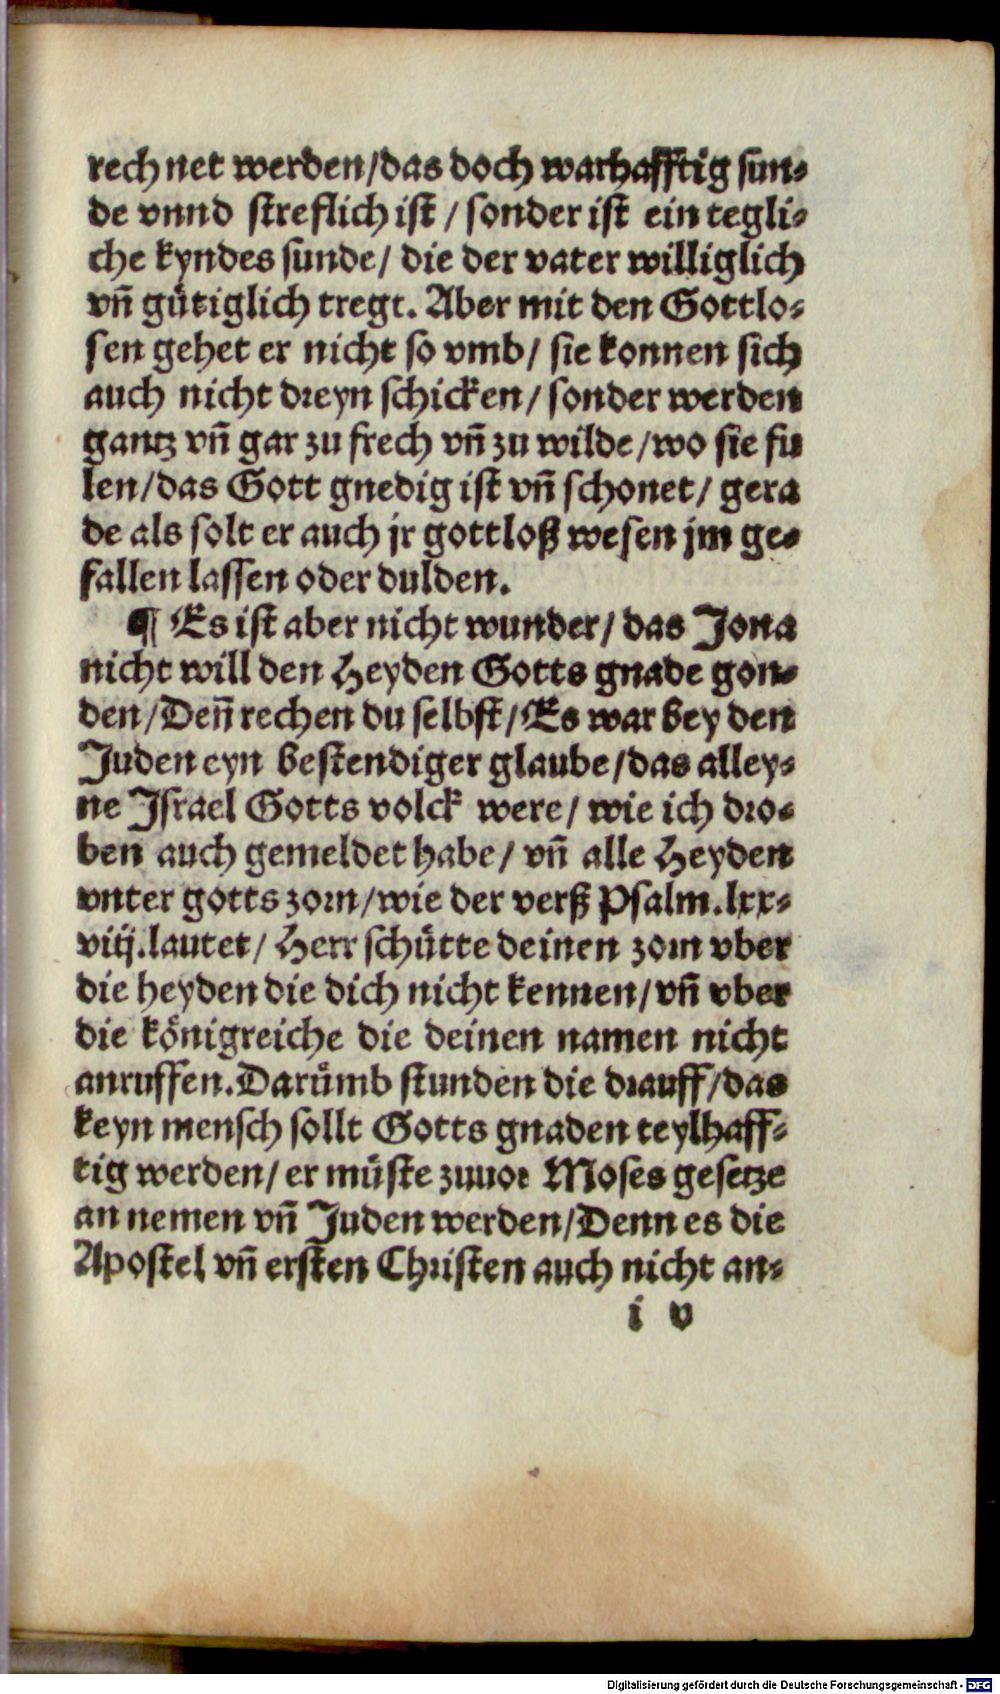 rech net werden/das doch warhafftig sun⸗
de vnnd streflich ist / sonder ist ein tegli⸗
che kyndes sunde/ die der vater williglich
vñ gütiglich tregt. Aber mit den Gottlo⸗
sen gehet er nicht so vmb/ sie konnen sich
auch nicht dreyn schicken/ sonder werden
gantz vñ gar zu frech vñ zu wilde/wo sie fu
len/das Gott gnedig ist vñ schonet/ gera
de als solt er auch jr gottloß wesen jm ge⸗
fallen lassen oder dulden.
¶ Es ist aber nicht wunder/ das Jona
nicht will den Heyden Gotts gnade gon⸗
den/Deñ rechen du selbst/Es war bey den
Juden eyn bestendiger glaube/das alley⸗
ne Israel Gotts volck were/ wie ich dro⸗
ben auch gemeldet habe/ vñ alle Heyden
vnter gotts zorn/wie der verß Psalm.lxx⸗
viij.lautet/ Herr schütte deinen zorn vber
die heyden die dich nicht kennen/vñ vber
die königreiche die deinen namen nicht
anruffen.Darümb stunden die drauff/das
keyn mensch sollt Gotts gnaden teylhaff⸗
tig werden/ er müste zuuor Moses gesetze
an nemen vñ Juden werden/Denn es die
Apostel vñ ersten Christen auch nicht an⸗
i v
Digitalisierung gefördert durch die Deutsche Forschungsgemeinschaft - DFG